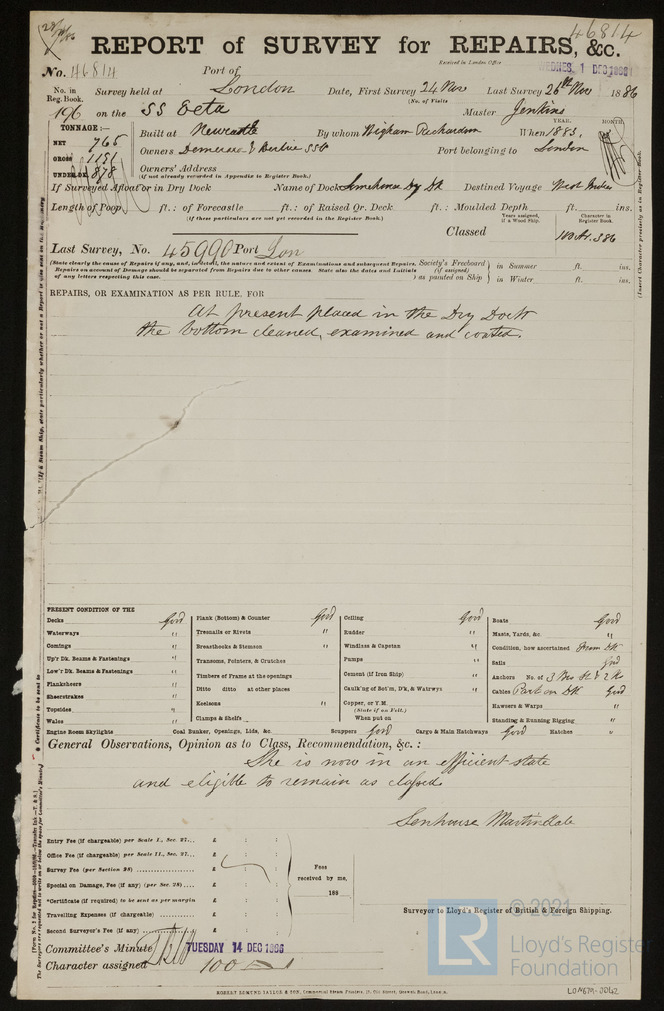 46814
REPORT of SURVEY for REPAIRS, &c.
Received in London Office
WEDNES. 1 DEC 1886
No. 46814 Port of London
No. in Reg. Book. Survey held at Date, First Survey 24 Nov Last Survey 26th Nov 1886
(No. of Visits
196 on the SS Eeta Master Jenkins
TONNAGE:— YEAR. MONTH.
NET 765 Built at Newcastle By whom Wigham Richardson When 1883,
GROSS 1156 Owners Demerara & Berbice SSC Port belonging to London
UNDER DK. 878 Owners' Address
(if not already recorded in Appendix to Register Book.)
If Surveyed Afloat or in Dry Dock Name of Dock Limehouse Dry Dk Destined Voyage West Indies
Length of Poop ft.: of Forecastle ft.: of Raised Qr. Deck ft.: Moulded Depth ft. ins.
(If these particulars are not yet recorded in the Register Book.)
Years assigned, if a Wood Ship. Character in Register Book.
Classed 100 A1. 3,86
Last Survey, No. 45990 Port Lon
(State clearly the cause of Repairs if any, and, in detail, the nature and extent of Examinations and subsequent Repairs.
Repairs on account of Damage should be separated from Repairs due to other causes. State also the dates and Initials
of any letters respecting this case.
Society's Freeboard (if assigned) as painted on Ship in Summer ft. ins.
in Winter ft. ins.
REPAIRS, OR EXAMINATION AS PER RULE. FOR
At present placed in the Dry Dock
the bottom cleaned, examined and coated.
PRESENT CONDITION OF THE
Decks Good
Waterways "
Comings "
Up'r Dk. Beams & Fastenings "
Low'r Dk. Beams & Fastenings "
Planksheers "
Sheerstrakes "
Topsides "
Wales "
Plank (Bottom) & Counter Good
Treenails or Rivets "
Breasthooks & Stemson "
Transoms, Pointers, & Crutches
Timbers of Frame at the openings
Ditto ditto at other places
Keelsons "
Clamps & Shelfs
Ceiling Good
Rudder "
Windlass & Capstan "
Pumps "
Cement (if Iron Ship) "
Caulk'ng of Bot'm, D'k, & Watrwys "
Copper, or Y.M.
(State if on Felt.)
When put on
Boats Good
Masts, Yards, &c. "
Condition, how ascertained From Dk
Sails Good
Anchors No. of 3 Bow St & 2 K
Cables Part on Dk Good
Hawsers & Warps "
Standing & Running Rigging "
Engine Room Skylights Coal Bunker, Openings, Lids, &c. Scuppers Good Cargo & Main Hatchways Good Hatches "
General Observations, Opinion as to Class, Recommendation, &c.:
She is now in an efficient state
and eligible to remain as classed.
Senhouse Martindale
Entry Fee (if chargeable) per Scale I., Sec. 27... £ : :
Office Fee (if chargeable) per Scale II., Sec. 27... £ : :
Survey Fee (per Section 28) £ : :
Special on Damage, Fee (if any) (per Sec. 28) £ : :
*Certificate (if required) to be sent as per margin
Travelling Expenses (if chargeable) £ : :
Second Surveyor's Fee (if any) £ : :
Fees received by me,
188
Surveyor to Lloyd's Register of British & Foreign Shipping.
Committee's Minute TUESDAY 14 DEC 1886
Character assigned 100 A 1
ROBERT EDMUND TAYLOR & SON,
(Insert Character precisely as in the Register Book.
* Certificate to be sent to
LR
© 2021
Lloyd's Register
Foundation
LON679-0042